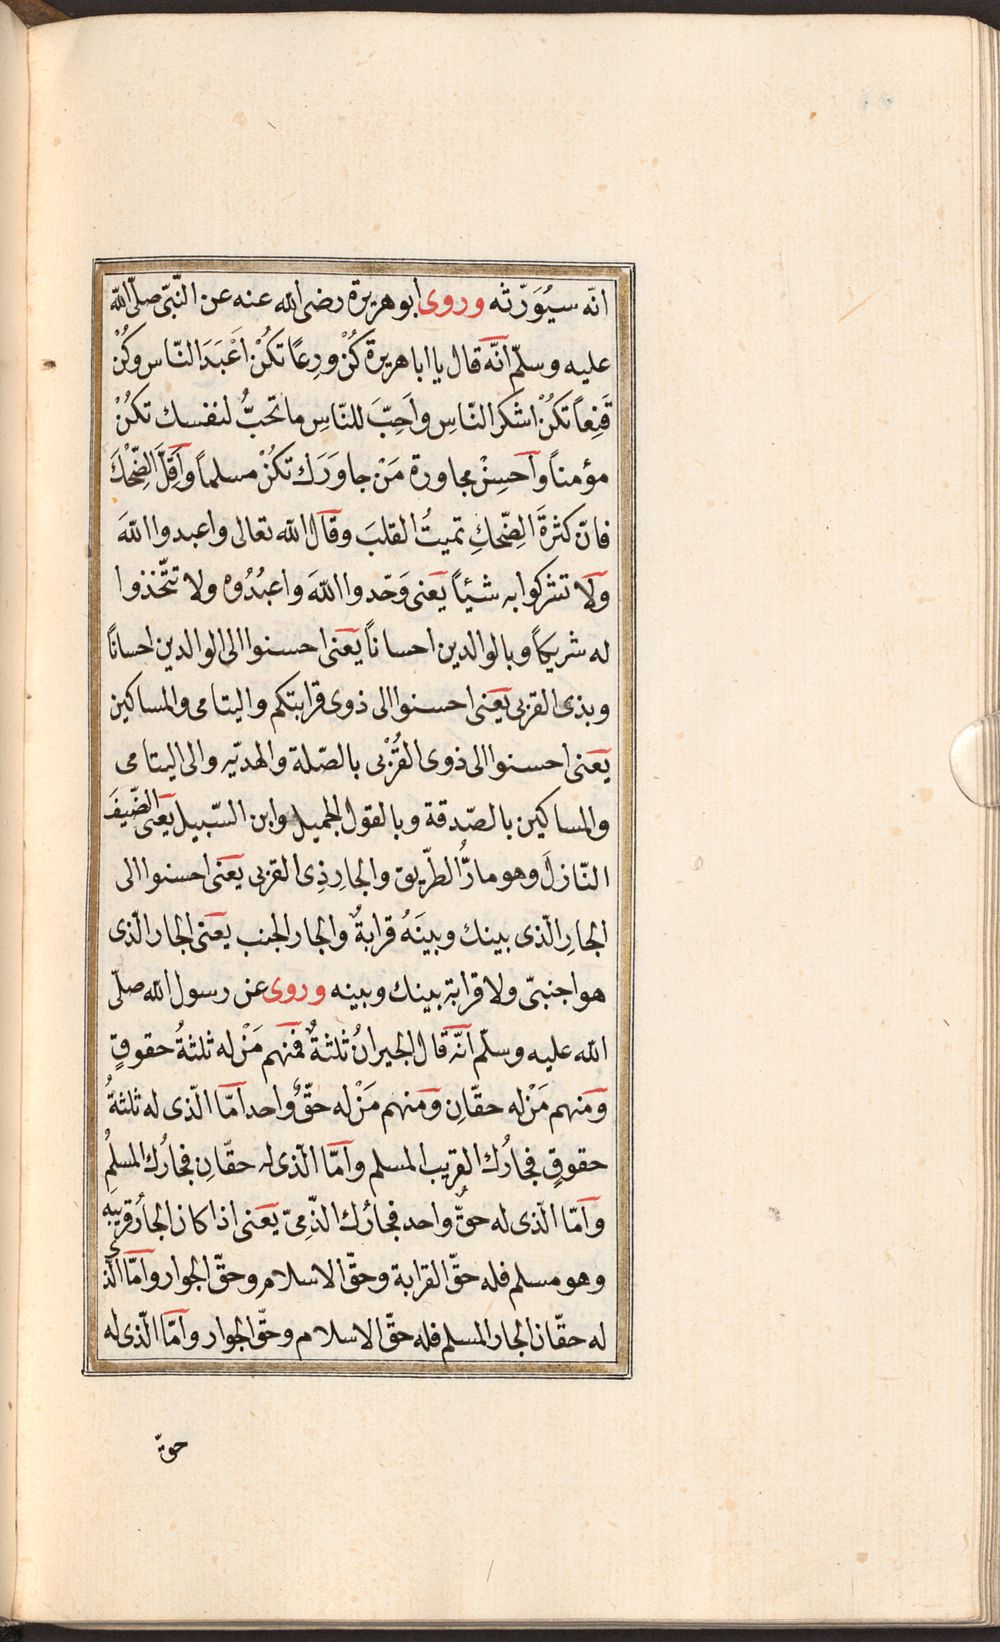 انّه سيُوَرّثه وروى ابو هريرة رضى الله عنه عن النّبىّ صلّى الله
عليه وسلّم انّه قال يا ابا هريرة كُنْ ورِعًا تكُنْ اَعْبَدَ النّاس وكُنْ
قَنِعاً تكُنْ اشكر النّاسِ واَحِبَّ للنّاسِ ما تحبُّ لنفسك تكُنْ
مؤمناً واَحسِنْ مجاورة مَنْ جاوَرَك تكُنْ مسلماً واَقِلَّ الضِّحْكَ
فانّ كثرةَ الضِّحكِ تميتُ القلبَ وقال الله تعالى واعبدوا اللهَ
ولا تشركوا به شيْاً يعنى وَحّدوا اللهَ واعبُدُوه ولا تتّخذوا
له شريكاً وبالوالدين احساناً يعنى احسنوا الى الوالدين احسانًا
وبذى القربى يعنى احسنوا الى ذوى قرابتكم واليتامى والمساكين
يعنى احسنوا الى ذوى القُرْبى بالصّلة والهديّه والى اليتامى
والمساكين بالصّدقة وبالقول الجميل وابن السّبيل يعنى الضّيفَ
النّازلَ وهو مارُّ الطّريق والجارِ ذِى القربى يعنى احسنوا الى
الجارِ الّذى بينك وبينَهُ قرابةٌ والجار الجنب يعنى الجار الّذى
هو اجنبىّ ولا قرابة بينك وبينه وروى عن رسول الله صلّى
الله عليه وسلّم انّه قال الجيرانُ ثلثةٌ فمنهم مَنْ له ثلثةُ حقوقٍ
ومنهم مَنْ له حقّانِ ومنهم مَنْ له حقٌّ واحد امّا الّذى له ثلثةُ
حقوقٍ فجارُك القريب المسلم وامّا الّذى له حقّانِ فجارُك المسلمُ
وامّا الّذى له حقٌّ واحد فجارُك الذّمىّ يعنى اذا كان الجارُ قريبَه
وهو مسلم فله حقّ القرابة وحقّ الاسلام وحقّ الجوار وامّا الّذى
له حقّان الجار المسلم فله حقّ الاسلام وحقّ الجوار وامّا الّذى له
حقّ